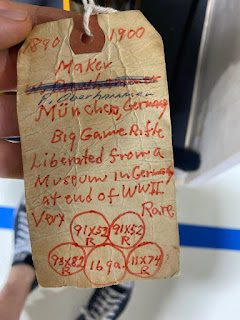 1890 1900
Maker
F. Oberhammer
München, Germany
Big Game Rifle
Liberated from a
Museum in Germany
at end of WWII
Very Rare
91x52 R 91x52 R
93x82 R 16 ga. 11x74 R